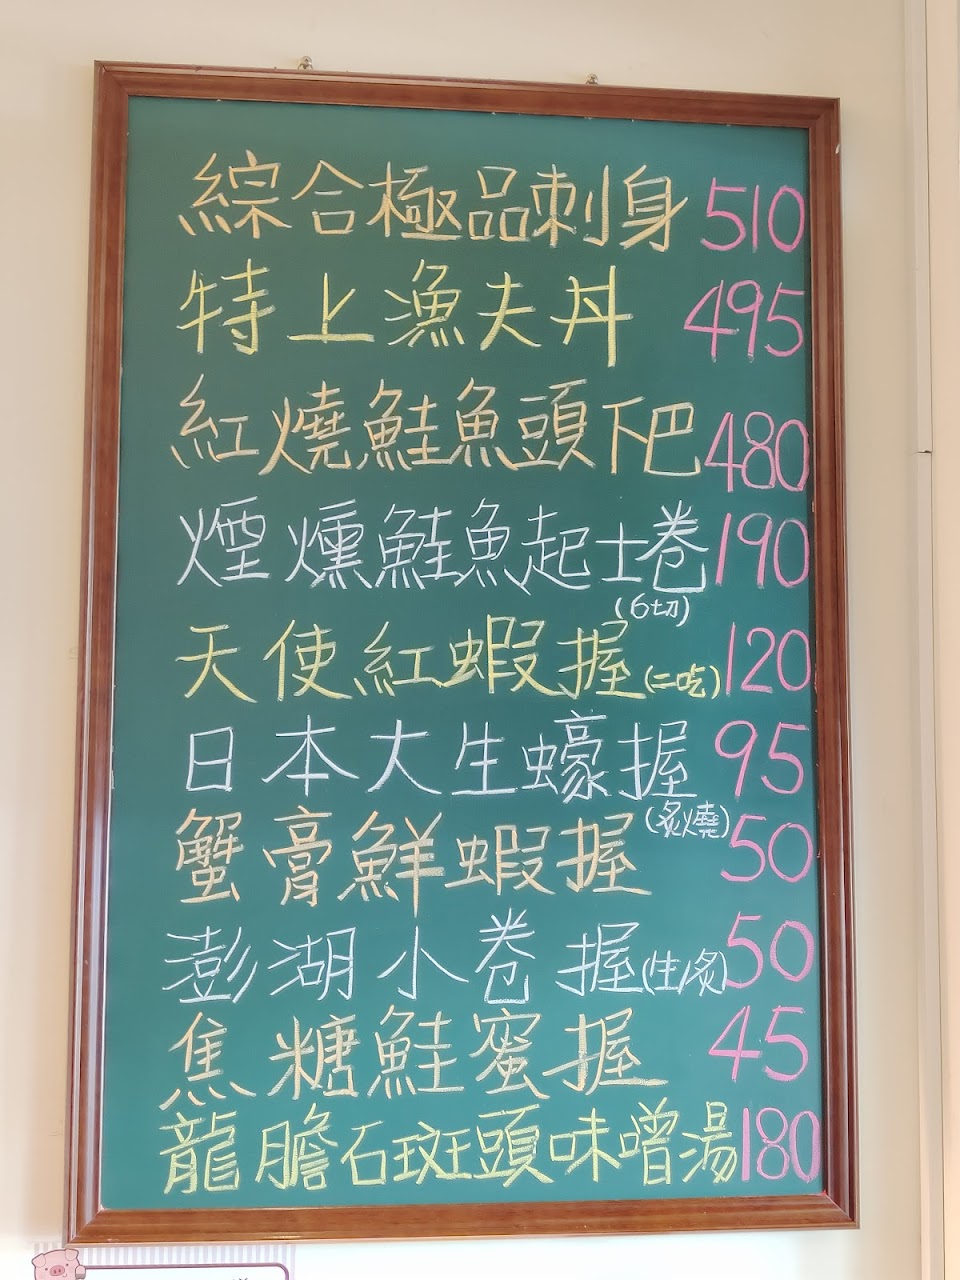 綜合極品刺身 510
特上漁夫丼 495
紅燒鮭魚頭下巴 480
煙燻鮭魚起士卷 190
(6切)
天使紅蝦握(二吃) 120
日本大生蠔握 95
(炙燒)
蟹膏鮮蝦握 50
澎湖小卷握(生/炙) 50
焦糖鮭蜜握 45
龍膽石斑頭味噌湯 180